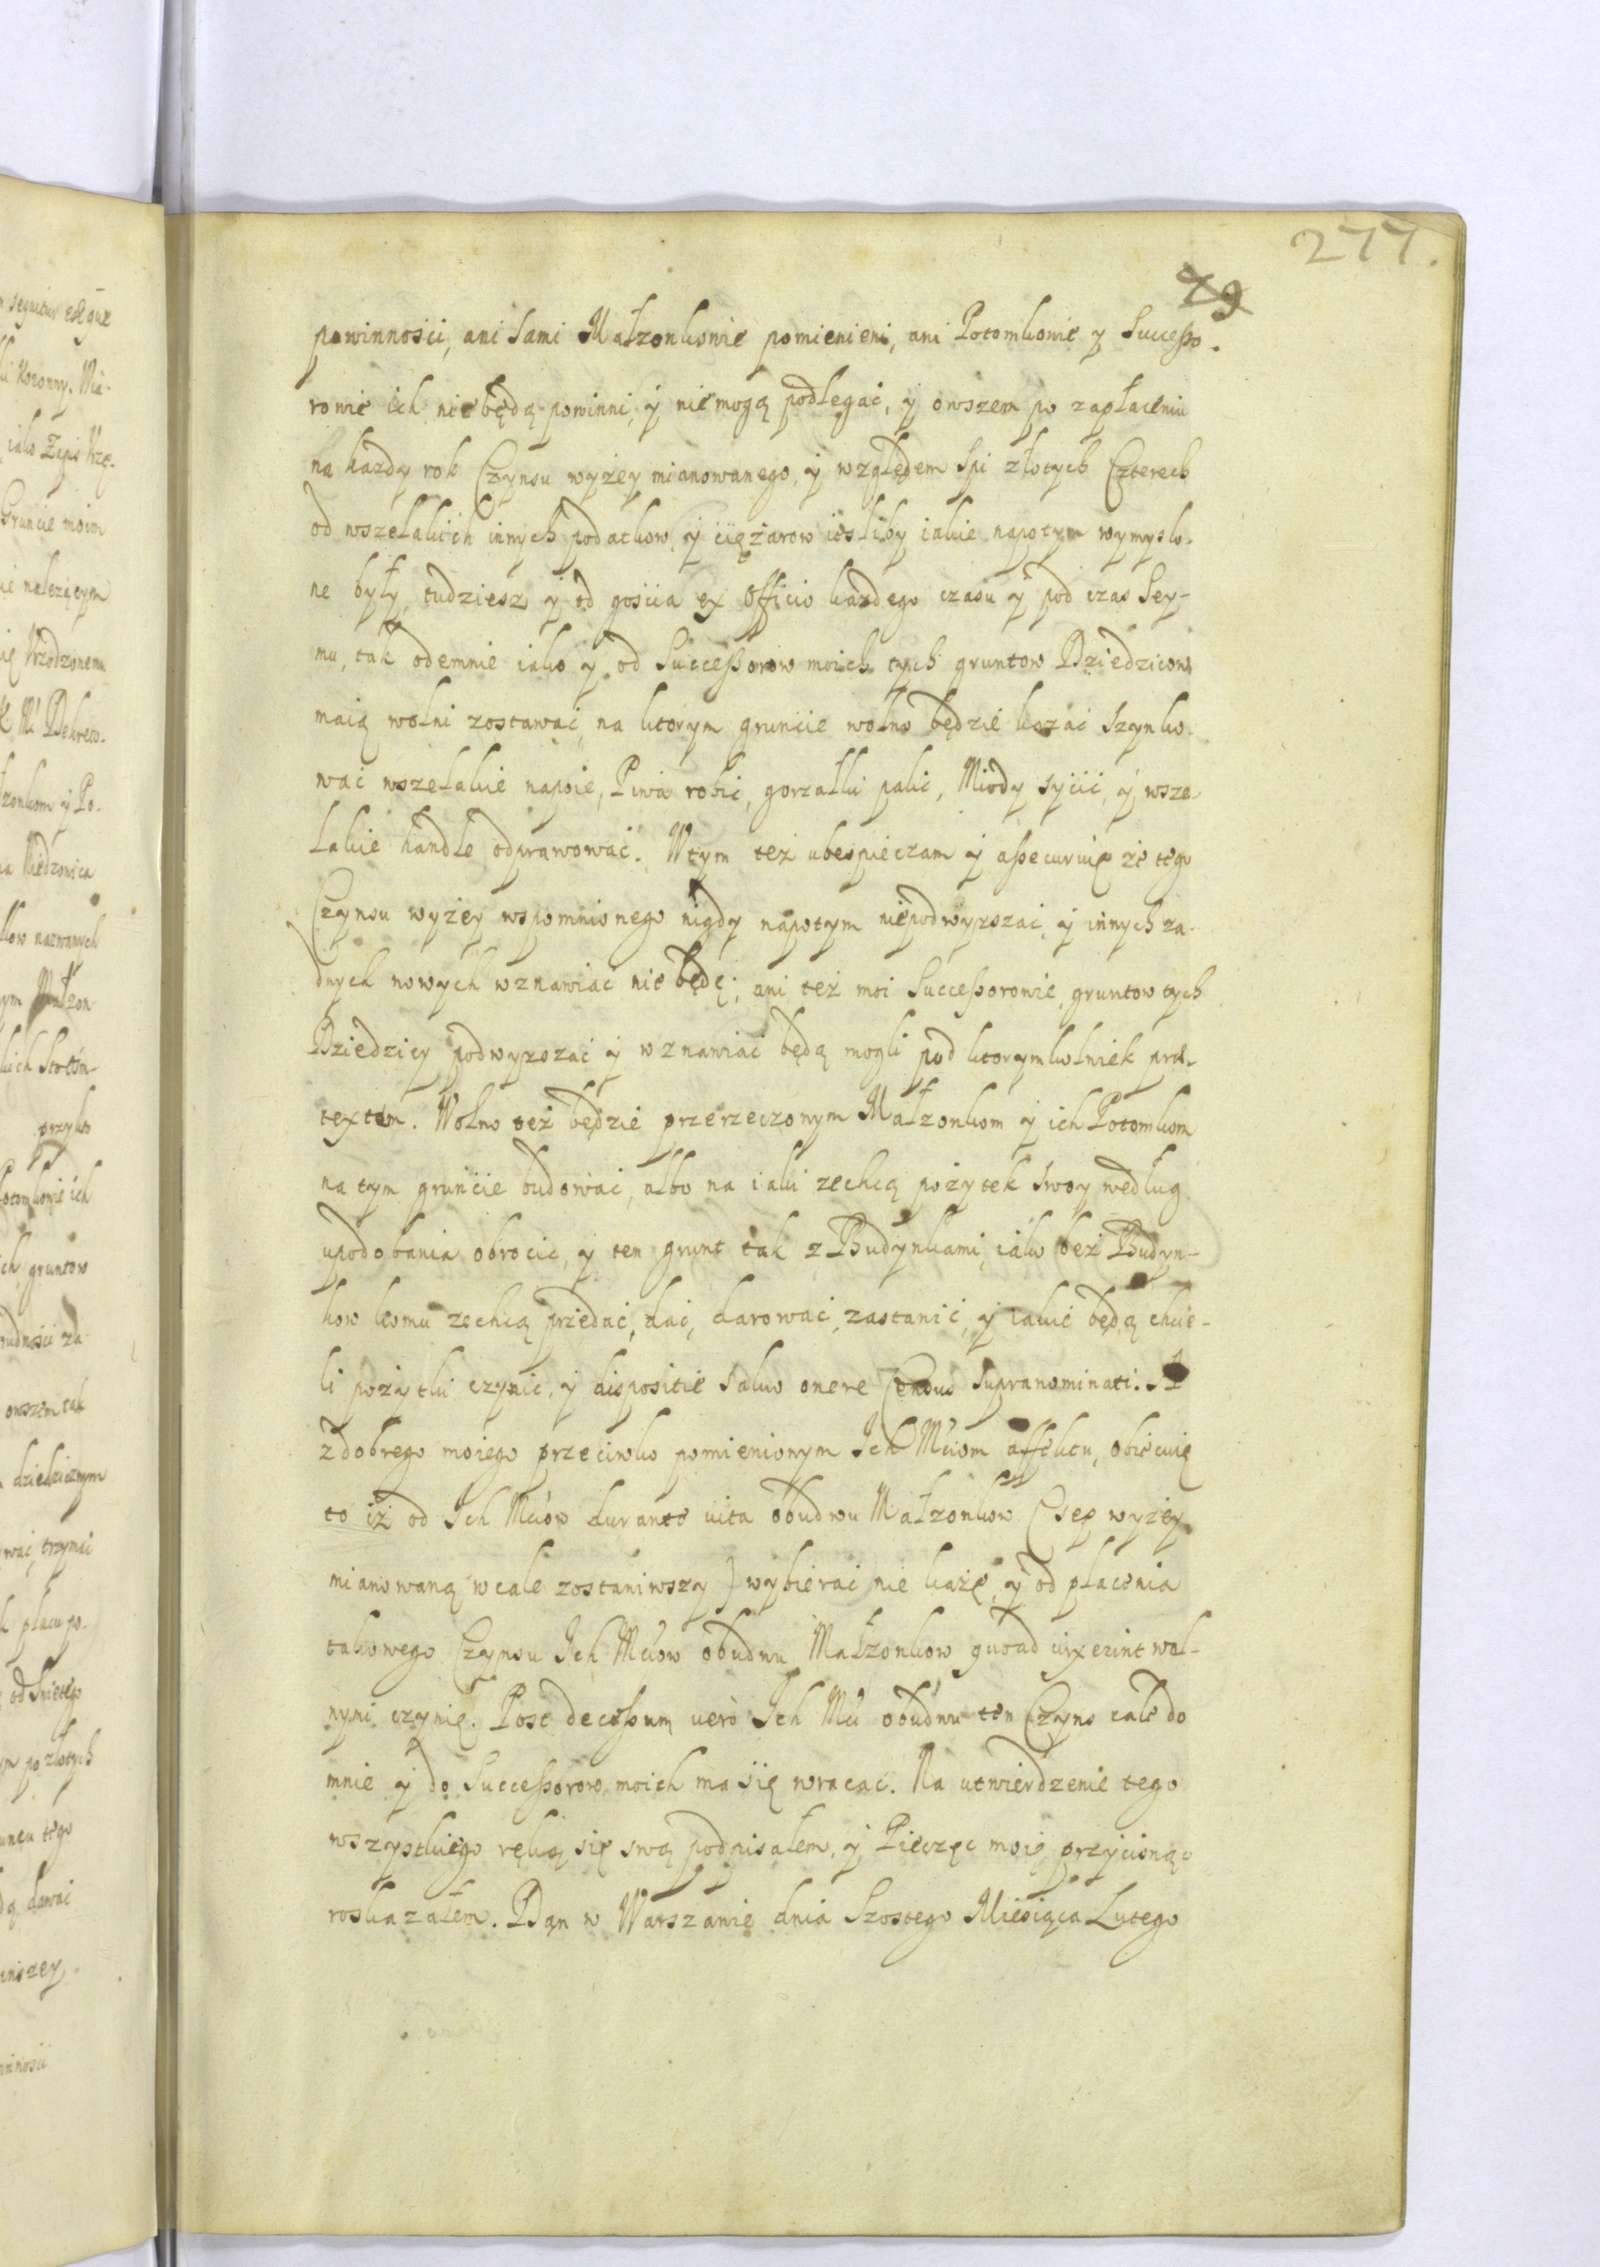 277.
79
powinnosci, ani sami Małzonkowie pomienieni, ani Potomkowie y Successo-
rowie ich nie będą powinni, y nie mogą podlegać, y owszem po zapłaceniu
na kazdy rok Czynsu wyżey mianowanego, y względem Spi złotych Czterech
od wszelakich innych podatkow y ciężarow iesliby iakie napotym wymyslo-
ne były, tudziesz y od goscia ex Officio kazdego czasu y pod czas Sey-
mu, tak odemnie iako y od Successorow moich tych gruntow Dziedzicow
maią wolni zostawać, na ktorym gruncie wolno będzie kozać Szynko-
wać wszelakie napoie, Piwa robić, gorzałki palić, Miody sycić, y wsze-
lakie handle odprawować. W tym też ubespieczam y assecuruię że tego
Czynsu wyżey wspomnionego nigdy napotym niepodwyzszać, y innych ża-
dnych nowych wznawiać nie będę; ani też moi Successorowie, gruntow tych
Dziedzicy podwyzszać y wznawiać będą mogli pod ktorymkolwiek præ-
textem. Wolno też będzie przerzeczonym Małzonkom y ich Potomkom
na tym gruncie budować, albo na iaki zechcą pożytek swoy według
upodobania obrocić, y ten grunt tak z Budynkami, iako bez Budyn-
kow komu zechcą przedać, dać, darować, zastawić, y iakie będą chcie-
li pożytki czynić, y dispositie salvo onere Census supranominati. A
z dobrego moiego przeciwko pomienionym Ich Mciom affektu, obiecuię
to iż od Ich Mciow durante vita obudwu Małzonkow (Sep wyżey
mianowaną wcale zostawiwszy) wybierać nie każę, y od płacenia
takowego Czynsu Ich Mciow obudwu Małzonkow quoad vixerint wol-
nymi czynię. Post decessum verò Ich Mci obudwu ten Czyns cale do
mnie y do Successorow moich ma się wracać. Na utwierdzenie tego
wszystkiego ręką się swą podpisałem, y Pieczęć moię przycisnąć
roskazałem. Dan w Warszawie dnia Szostego Miesiąca Lutego